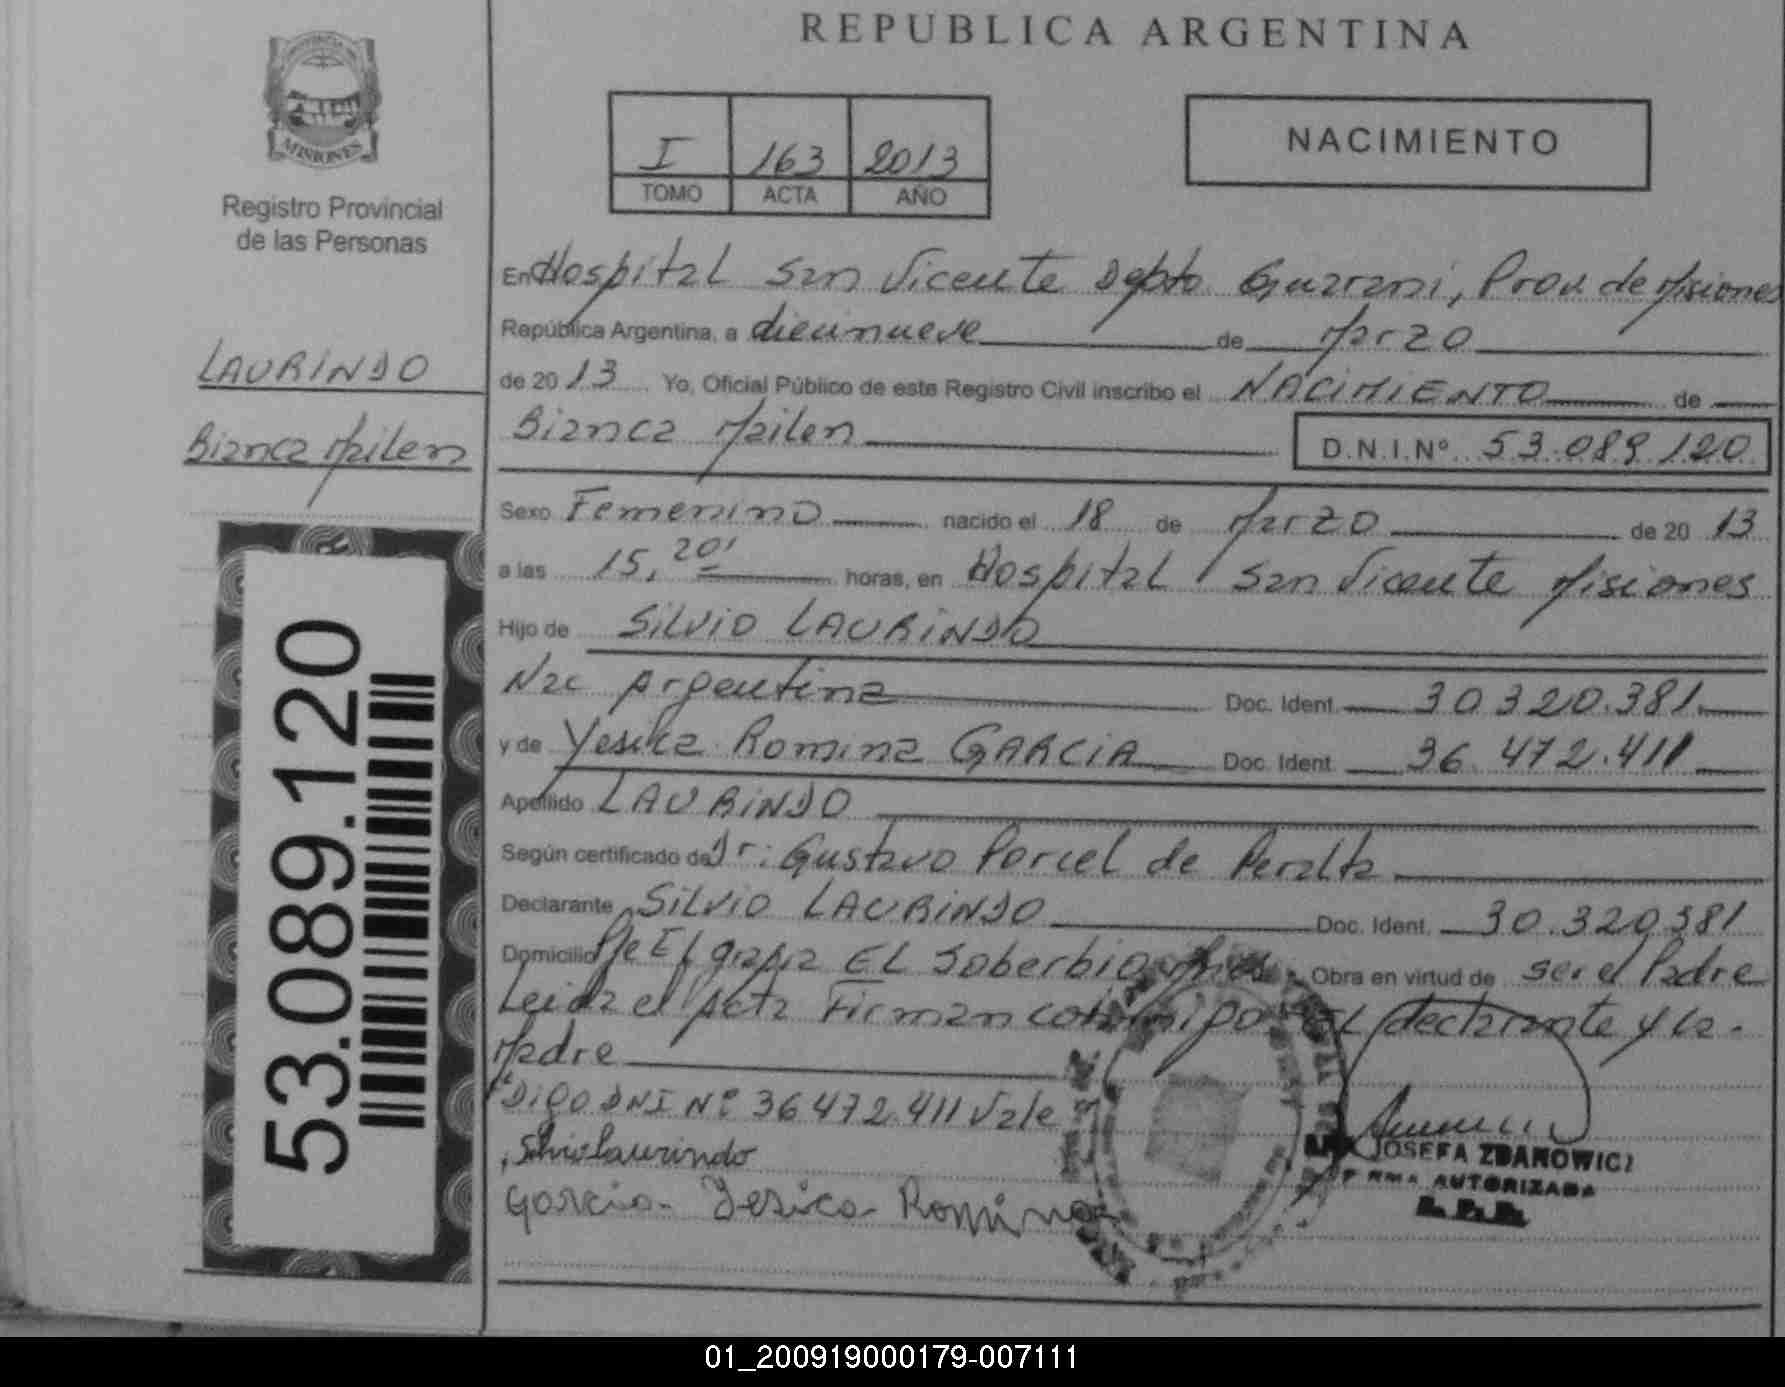 REPUBLICA ARGENTINA
MISIONES
Registro Provincial
de las Personas
I 163 2013
TOMO ACTA AÑO
NACIMIENTO
LAURINDO
Bianca Mailen
53.089.120
En Hospital San Vicente Depto Guarani, Prov de Misiones
República Argentina, a diecinueve de Marzo
de 20 13 Yo, Oficial Público de este Registro Civil inscribo el NACIMIENTO de
Bianca Mailen D.N.I.Nº 53.089.120
Sexo Femenino nacido el 18 de Marzo de 20 13
a las 15,20' horas, en Hospital San Vicente Misiones
Hijo de Silvio LAURINDO
Nac Argentina Doc. Ident. 30.320.381
y de Yesica Romina GARCIA Doc. Ident. 36.472.411
Apellido LAURINDO
Según certificado de Dr: Gustavo Porcel de Peralta
Declarante Silvio LAURINDO Doc. Ident. 30.320.381
Domicilio El Soberbio Obra en virtud de ser el Padre
Leida el Acta Firman conmigo EL declarante y la
Madre
Digo DNI Nº 36472.411 Vale
Silvio Laurindo
Garcia Jesica Romina
JOSEFA ZDANOWICZ
FIRMA AUTORIZADA
R. P. P.
01_200919000179-007111